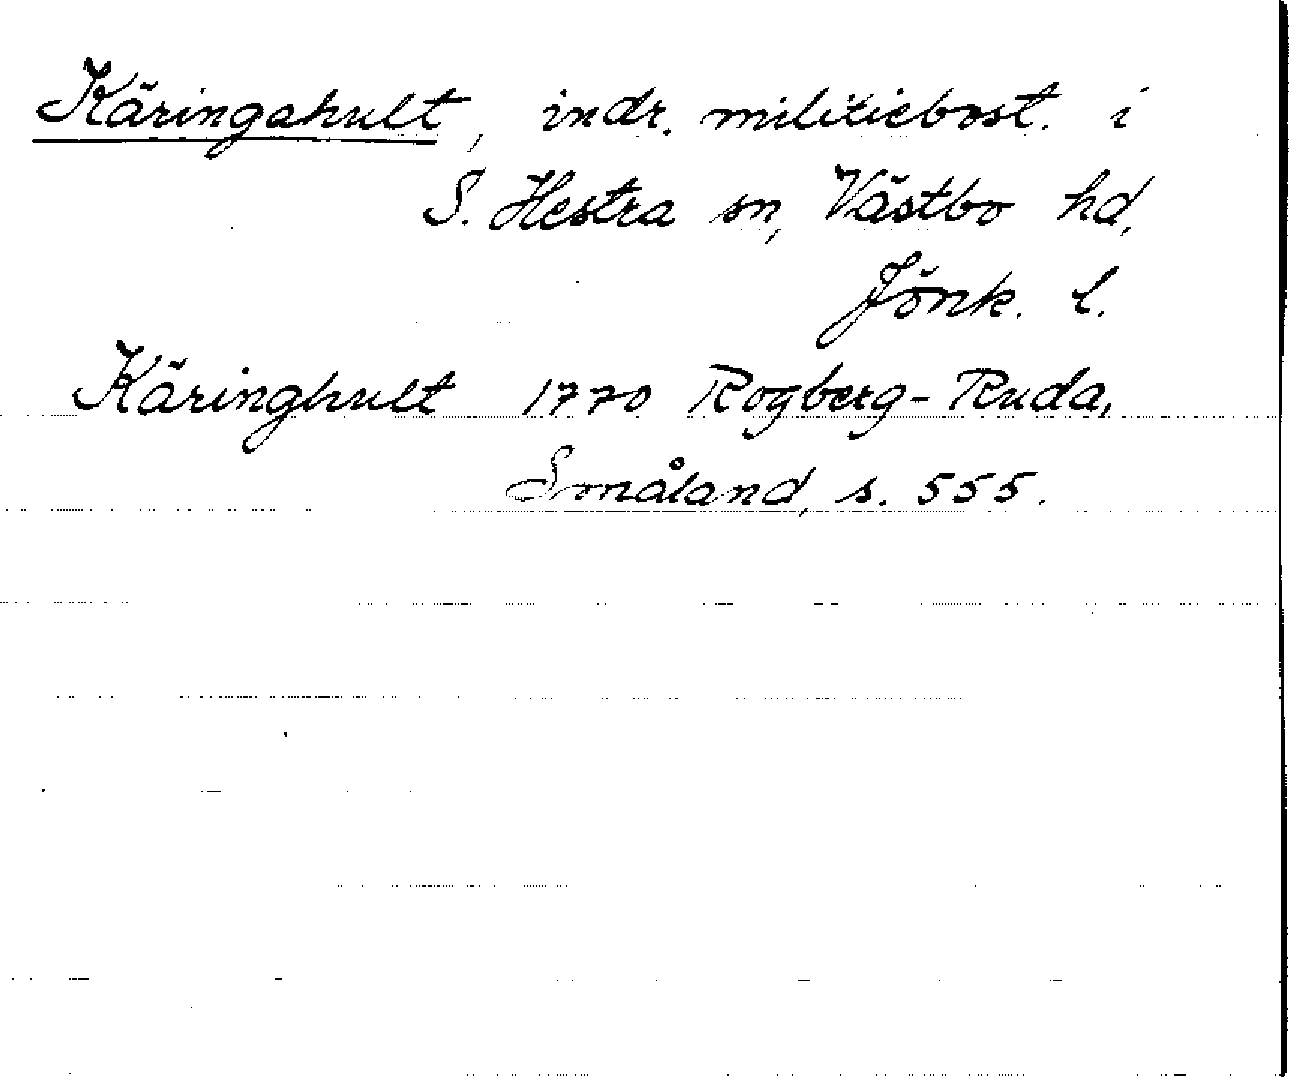 Käringahult, indr. militiebost. i
S. Hestra sn, Västbo hd,
Jönk. l.
Käringhult 1770 Rogberg-Ruda,
Småland, s. 555.